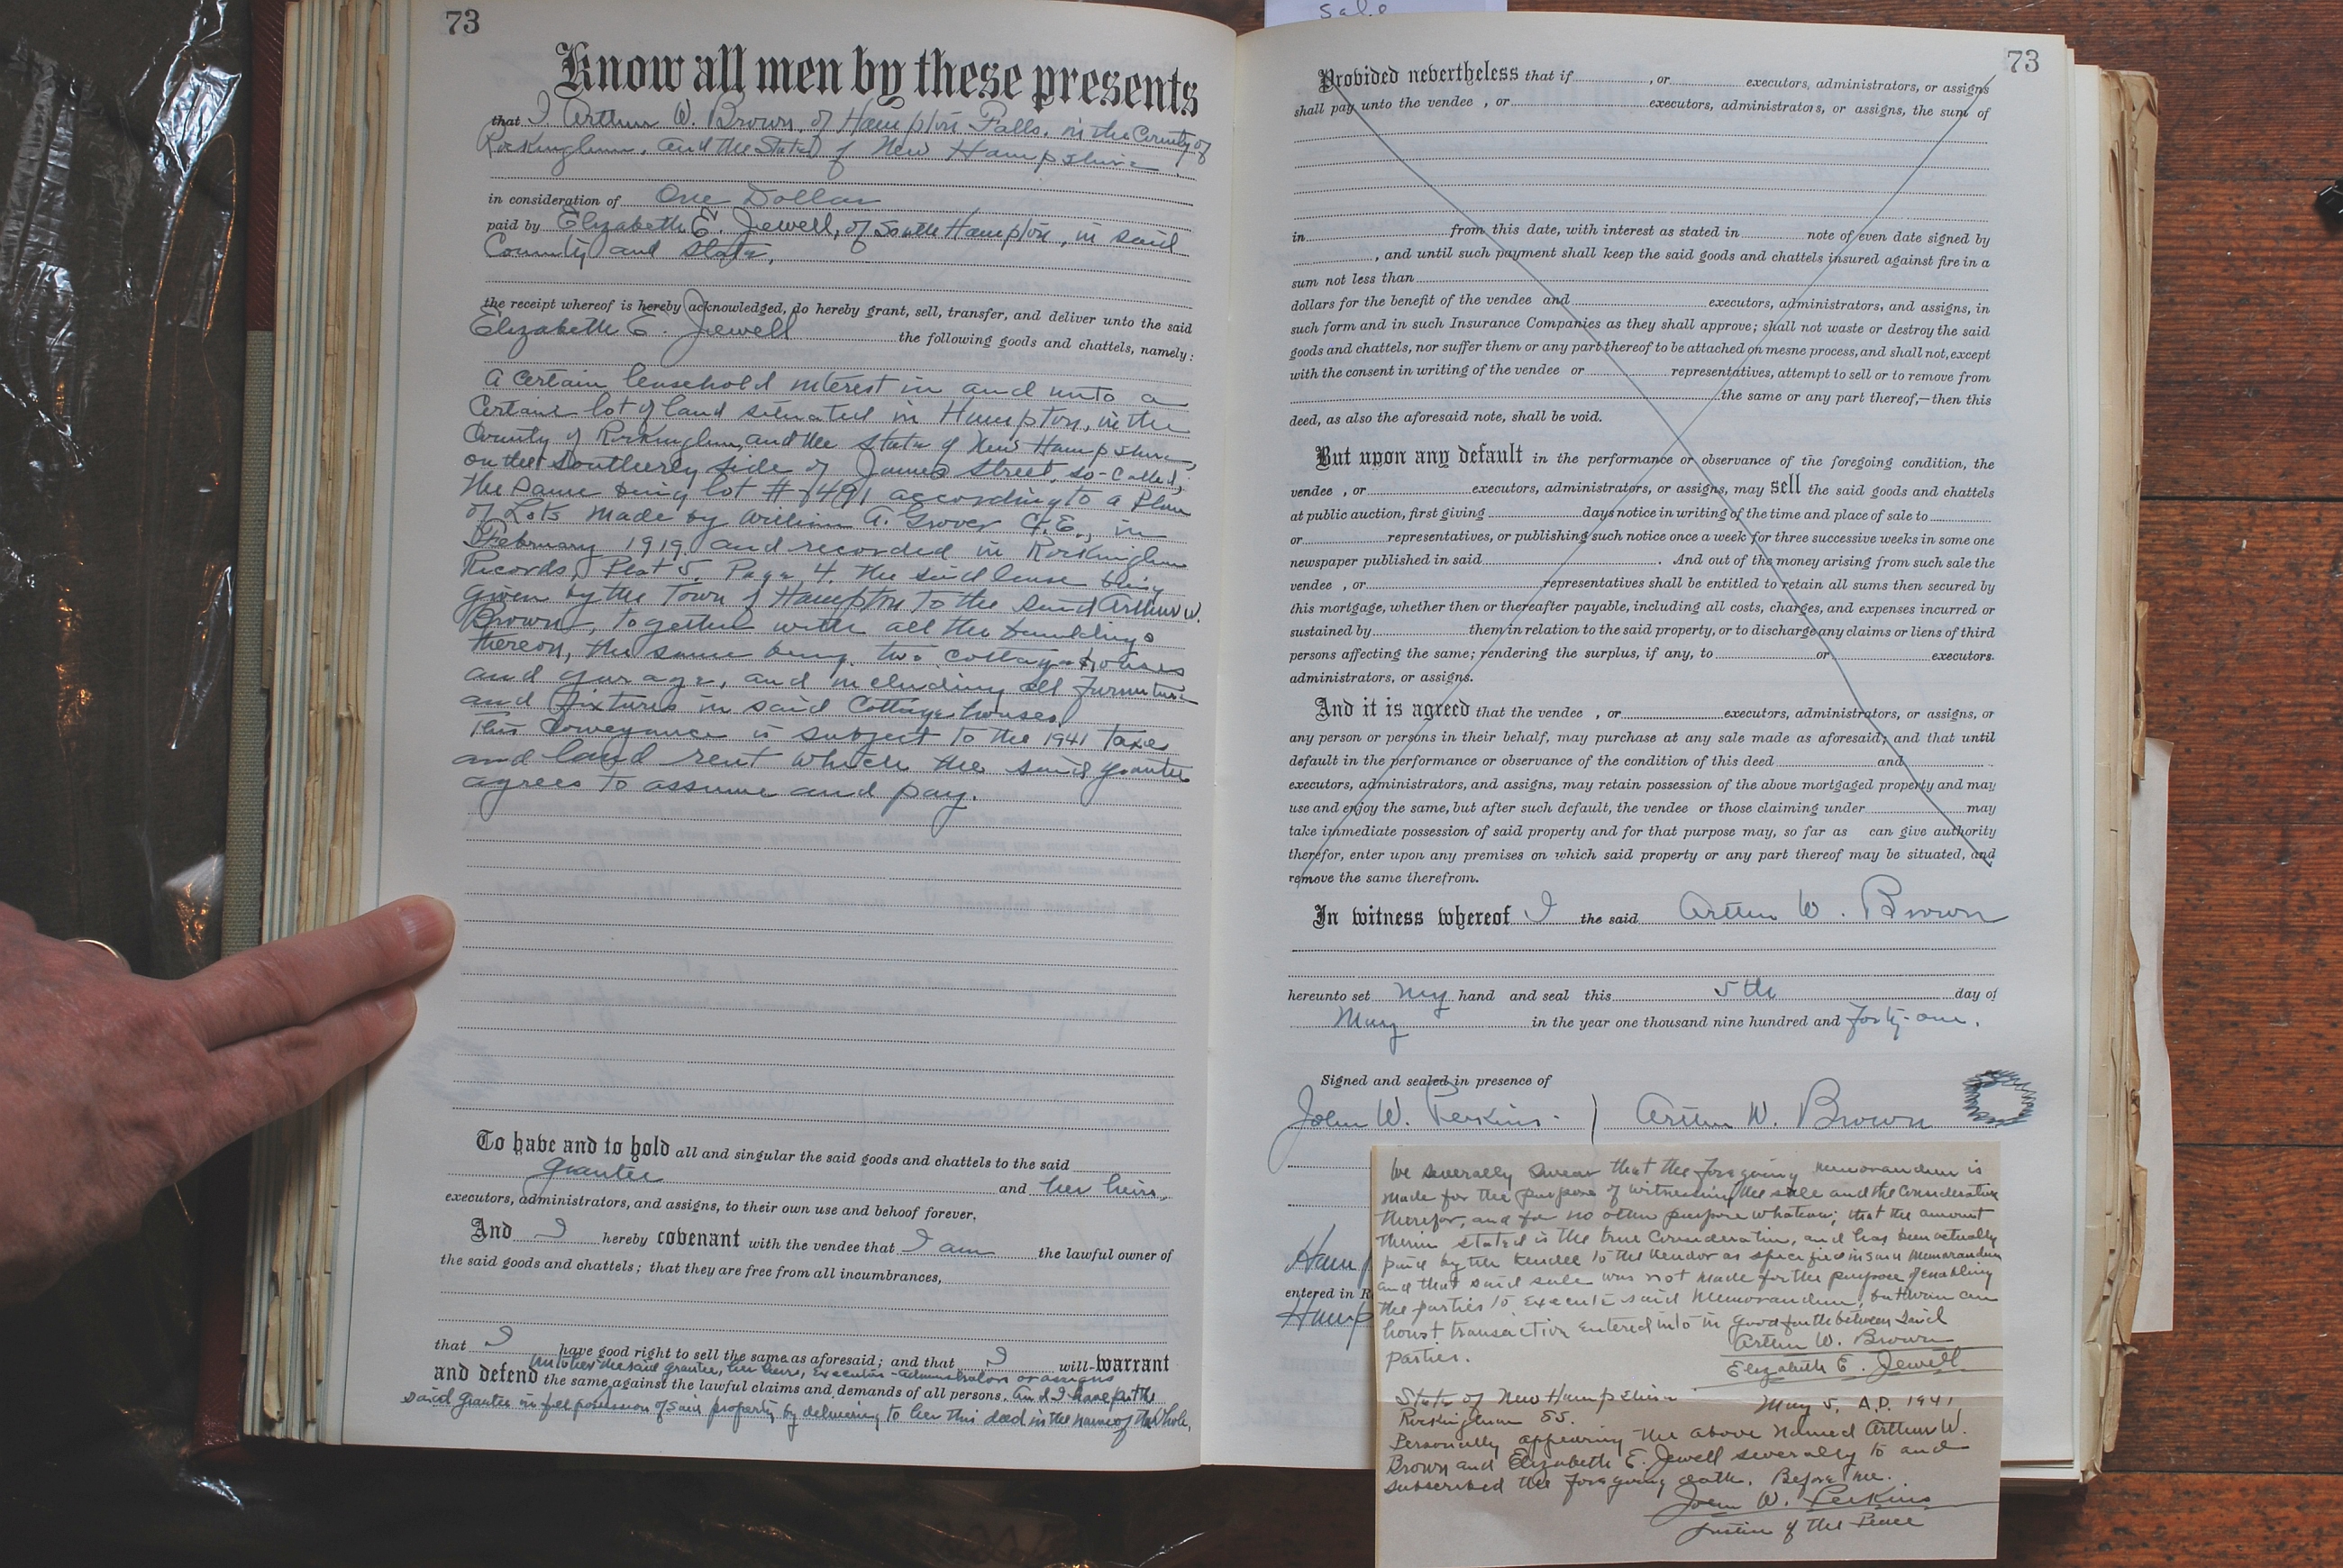 sale
73
Know all men by these presents
that I Arthur W. Brown, of Hampton Falls, in the County of
Rockingham, and the State of New Hampshire,
in consideration of One Dollar
paid by Elizabeth E. Jewell, of South Hampton, in said
County and State,
the receipt whereof is hereby acknowledged, do hereby grant, sell, transfer, and deliver unto the said
Elizabeth E. Jewell the following goods and chattels, namely:
A certain leasehold interest in and unto a
certain lot of land situated in Hampton, in the
County of Rockingham, and the State of New Hampshire,
on the southerly side of James Street, so-called,
the same being lot # 491 according to a Plan
of Lots made by William A. Grover C.E., in
February 1919 and recorded in Rockingham
Records, Plat 5, Page 4. The said lease being
given by the Town of Hampton to the said Arthur W.
Brown, together with all the buildings
thereon, the same being two cottage houses
and garage, and including all furniture
and fixtures in said Cottage houses.
This conveyance is subject to the 1941 taxes
and land rent which the said grantee
agrees to assume and pay.
To have and to hold all and singular the said goods and chattels to the said
grantee and her heirs,
executors, administrators, and assigns, to their own use and behoof forever.
And I hereby covenant with the vendee that I am the lawful owner of
the said goods and chattels; that they are free from all incumbrances,
that I have good right to sell the same as aforesaid; and that I will warrant
unto her the said grantee, her heirs, executors-administrators or assigns
and defend the same against the lawful claims and demands of all persons. And I have put the
said grantee in full possession of said property by delivering to her this deed in the name of the whole.
73
Provided nevertheless that if , or executors, administrators, or assigns
shall pay unto the vendee , or executors, administrators, or assigns, the sum of
in from this date, with interest as stated in note of even date signed by
, and until such payment shall keep the said goods and chattels insured against fire in a
sum not less than
dollars for the benefit of the vendee and executors, administrators, and assigns, in
such form and in such Insurance Companies as they shall approve; shall not waste or destroy the said
goods and chattels, nor suffer them or any part thereof to be attached on mesne process, and shall not, except
with the consent in writing of the vendee or representatives, attempt to sell or to remove from
the same or any part thereof,—then this
deed, as also the aforesaid note, shall be void.
But upon any default in the performance or observance of the foregoing condition, the
vendee , or executors, administrators, or assigns, may sell the said goods and chattels
at public auction, first giving days notice in writing of the time and place of sale to
or representatives, or publishing such notice once a week for three successive weeks in some one
newspaper published in said . And out of the money arising from such sale the
vendee , or representatives shall be entitled to retain all sums then secured by
this mortgage, whether then or thereafter payable, including all costs, charges, and expenses incurred or
sustained by them in relation to the said property, or to discharge any claims or liens of third
persons affecting the same; rendering the surplus, if any, to or executors.
administrators, or assigns.
And it is agreed that the vendee , or executors, administrators, or assigns, or
any person or persons in their behalf, may purchase at any sale made as aforesaid; and that until
default in the performance or observance of the condition of this deed and
executors, administrators, and assigns, may retain possession of the above mortgaged property and may
use and enjoy the same, but after such default, the vendee or those claiming under may
take immediate possession of said property and for that purpose may, so far as can give authority
therefor, enter upon any premises on which said property or any part thereof may be situated, and
remove the same therefrom.
In witness whereof I the said Arthur W. Brown
hereunto set my hand and seal this 5th day of
May in the year one thousand nine hundred and forty-one.
Signed and sealed in presence of
John W. Perkins. ) Arthur W. Brown
Hamp
entered in R
Hamp
We severally swear that the foregoing memorandum is
made for the purpose of witnessing the sale and the consideration
therefor, and for no other purpose whatever; that the amount
therein stated is the true consideration, and has been actually
paid by the vendee to the vendor as specified in said memorandum
and that said sale was not made for the purpose of enabling
the parties to execute said memorandum, but was an
honest transaction entered into in good faith between said
parties.
Arthur W. Brown
Elizabeth E. Jewell
State of New Hampshire May 5, A.D. 1941
Rockingham SS.
Personally appearing the above named Arthur W.
Brown and Elizabeth E. Jewell severally to and
subscribed the foregoing oath. Before me.
John W. Perkins
Justice of the Peace